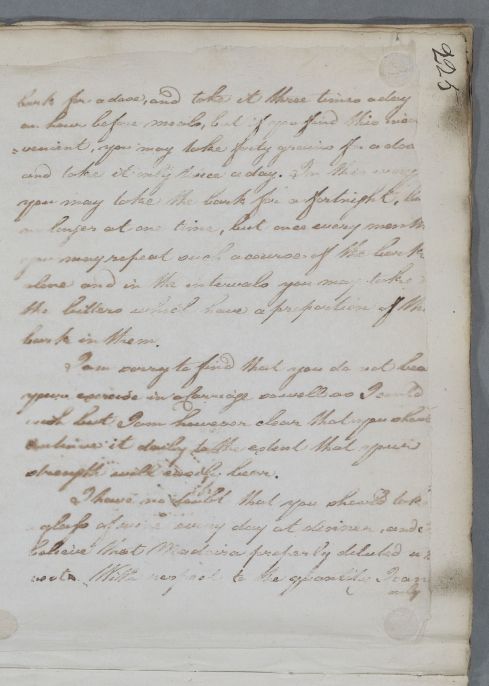 225
bark for a dose, and take it three times a day
an hour before meals, but if you find this incon
=venient, you may take forty grains for a dose
and take it only twice a day. In this way
you may take the bark for a fortnight, but
no longer at one time, but once every month
you may repeat such a course of the bark
alone and in the intervals you may take
the bitters which have a proportion of the
bark in them.
I am sorry to find that you do not bear
your exercise in a Carriage so well as I could
wish but I am however clear that you should
it daily to the extent that your
strength will easily bear.
I have no doubt that you should take
a glass of wine every day at dinner, and
believe that Madeira properly diluted
With respect to the quantity I can
only